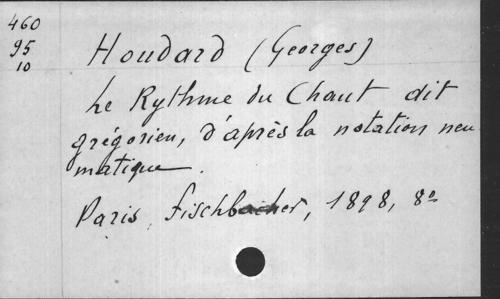 460
95
10
Houdard (Georges)
Le Rythme du Chant dit
grégorien, d'après la notation neu
matique.
Paris, Fischbacher, 1898, 8º